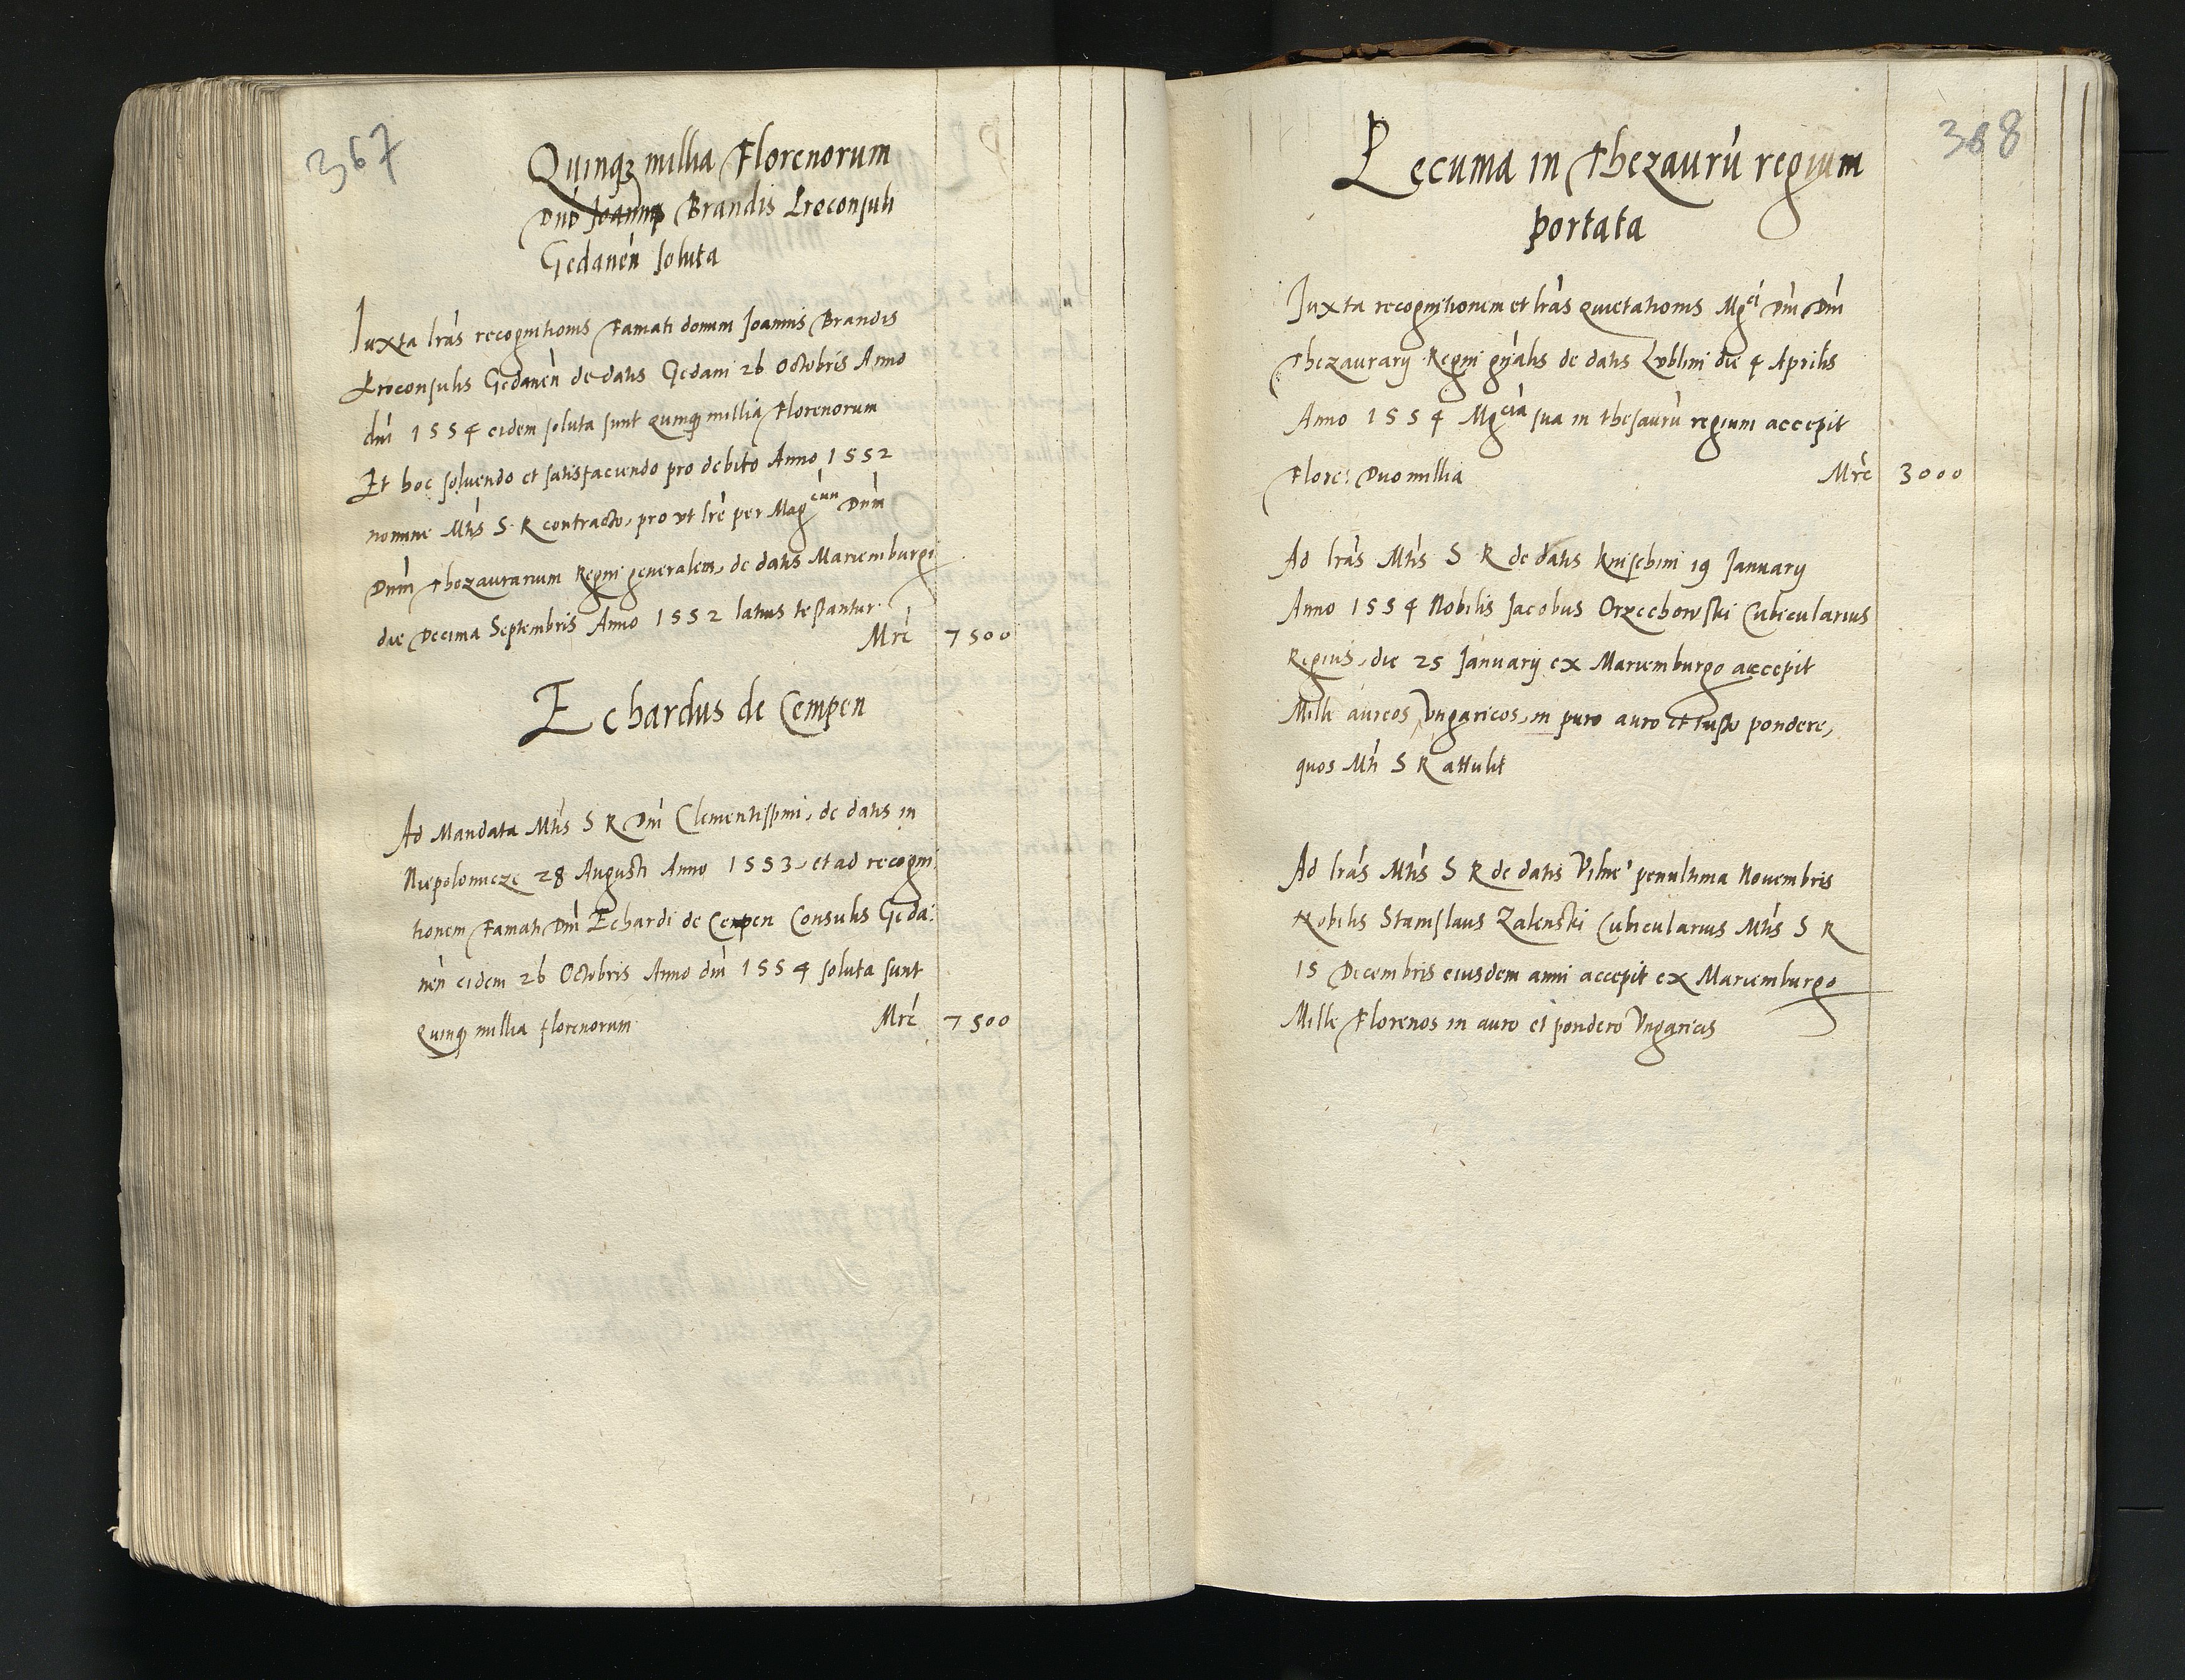 367
Quinq3 millia Florenorum
Dnō Joanni Brandis Proconsuli
Gedanen̄ soluta
Iuxta lrās recognitionis Famati domini Joannis Brandis
Proconsulis Gedanen̄ de datis Gedani 26 Octobris Anno
dnī 1554 eidem soluta sunt Quinq3 millia Florenorum
Et hoc soluendo et satisfaciendo pro debito Anno 1552
nomine Mtīs S. R contracto, pro vt lrē per Magcūm Dnūm
Dnūm Thezaurarium Regni generalem, de datis Mariemburgi
die Decima Septembris Anno 1552 latius testantur.
Mrć 7500
Echardus de Cempen
Ad Mandata Mtīs S R Dnī Clementissimi, de datis in
Niepolomicze 28 Augusti Anno 1553, et ad recogni
tionem Famati Dnī Echardi de Cempen Consulis Geda:
nēn eidem 26 Octobris Anno dnī 1554 soluta sunt
Quinq3 millia florenorum Mrć 7500
368
Pecunia in Thezaurū regium
portata
Iuxta recognitionem et lrās quietationis Mgci Dnī Dnī
Thezaurarij Regni gnālis de datis Lublini die 4 Aprilis
Anno 1554 Mgcia sua in thesaurū regium accepit
Flore: Duo millia Mrć 3000
Ad lrās Mtīs S R de datis Knischini 19 Januarij
Anno 1554 Nobilis Jacobus Orzechowski Cubicularius
Regius, die 25 Januarij ex Mariemburgo accepit
Mille aureos Vngaricos, in puro auro et iusto pondere,
quos Mtī S R attulit
Ad lrās Mtīs S R de datis Vilnē penultima Nouembris
Nobilis Stanislaus Zalenski Cubicularius Mtīs S R
15 Decembris eiusdem anni accepit ex Mariemburgo
Mille Florenos in auro et pondere Vngaricis